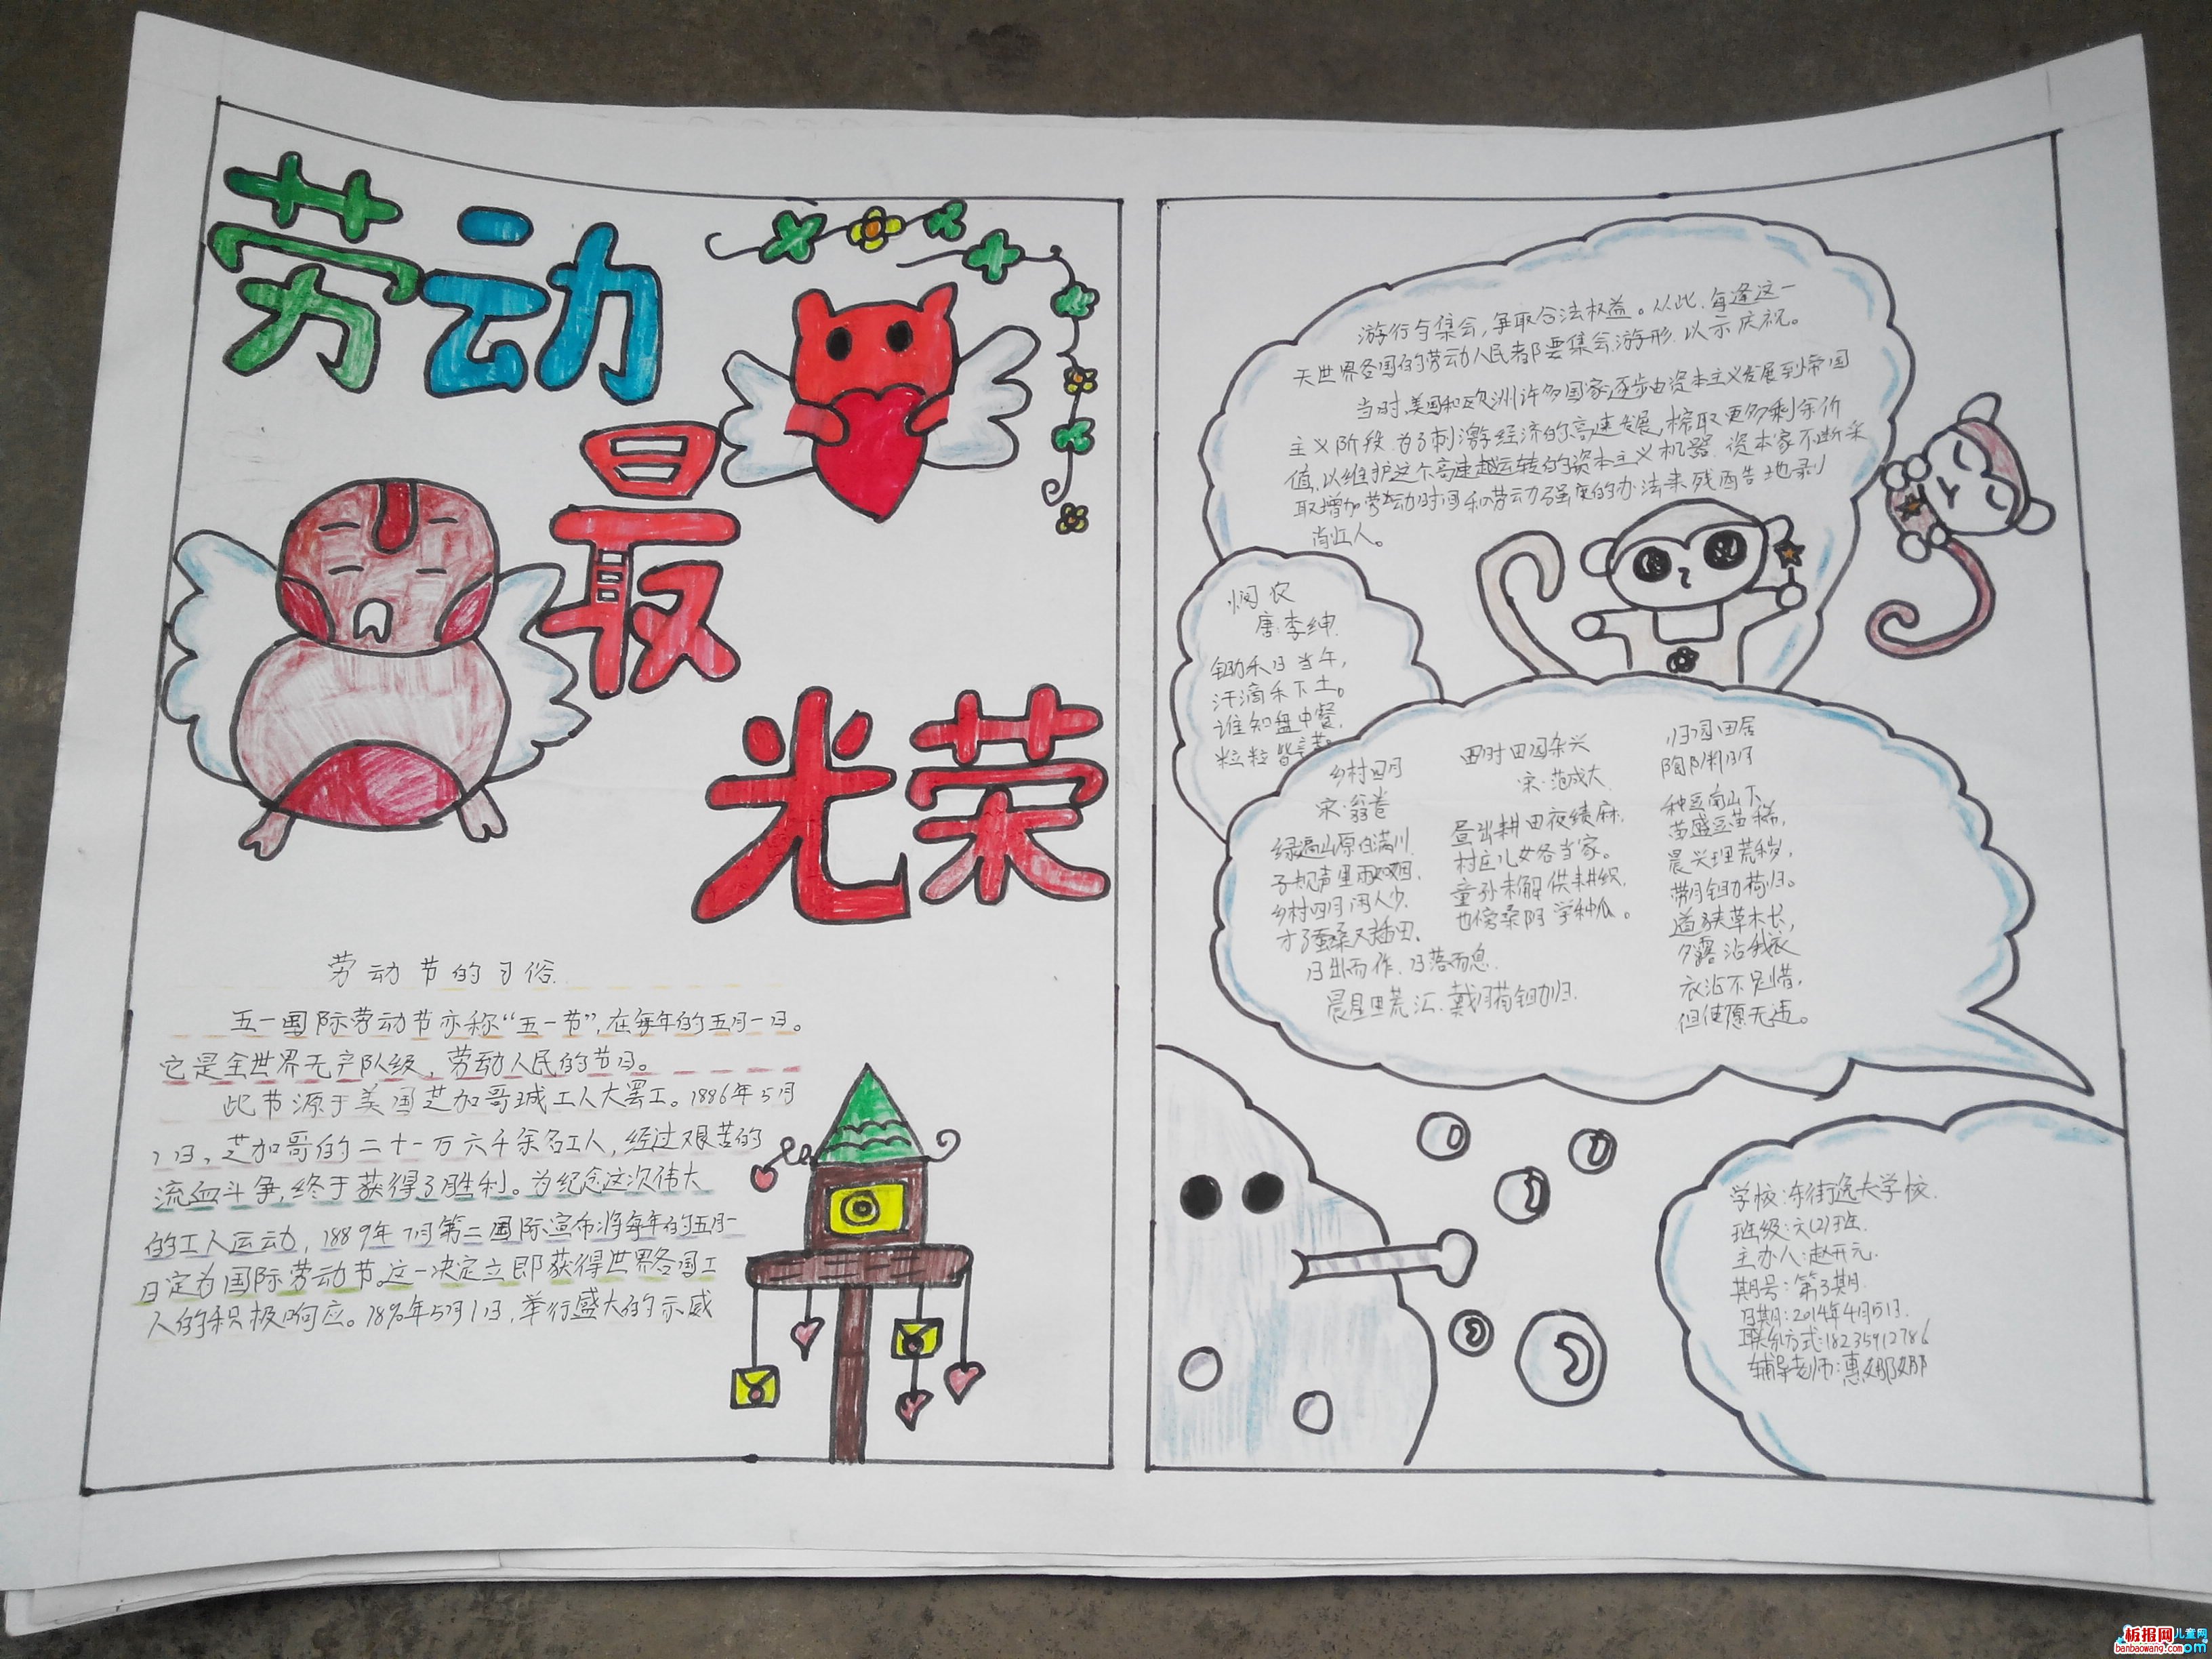 劳动
最
光荣
劳动节的习俗.
五一国际劳动节亦称“五一节”,在每年的五月一日。
它是全世界无产队级,劳动人民的节日。
此节源于美国芝加哥城工人大罢工。1886年5月
1日,芝加哥的二十一万六千余名工人,经过艰苦的
流血斗争,终于获得了胜利。为纪念这次伟大
的工人运动,1889年7月第二国际宣布将每年的五月一
日定为国际劳动节。这一决定立即获得世界各国工
人的积极响应。1890年5月1日,举行盛大的示威
游行与集会,争取合法权益。从此,每逢这一
天世界各国的劳动人民都要集会游形,以示庆祝。
当时,美国和欧洲许多国家,逐步由资本主义发展到帝国
主义阶段,为了刺激经济的高速发展,榨取更多剩余价
值,以维护这个高速运转的资本主义机器,资本家不断采
取增加劳动时间和劳动强度的办法来残酷地剥
削工人。
悯农
唐:李绅
锄禾日当午,
汗滴禾下土。
谁知盘中餐,
粒粒皆辛苦。
乡村四月
宋:翁卷
绿遍山原白满川,
子规声里雨如烟,
乡村四月闲人少,
才了蚕桑又插田。
日出而作,日落而息.
戴月荷锄归.
四时田园杂兴
宋:范成大
昼出耕田夜绩麻,
村庄儿女各当家。
童孙未解供耕织,
也傍桑阴学种瓜。
归园田居
陶渊明
种豆南山下,
苗盛豆苗稀,
晨兴理荒秽,
带月锄荷归。
道狭草木长,
夕露沾我衣
衣沾不足惜,
但使愿无违。
学校:东街逸夫学校.
班级:六(2)班.
主办人:赵开元.
期号:第3期.
日期:2014年4月51日.
联系方式:18235912786
辅导老师:惠娜娜
板报网儿童网
banbaowang.com